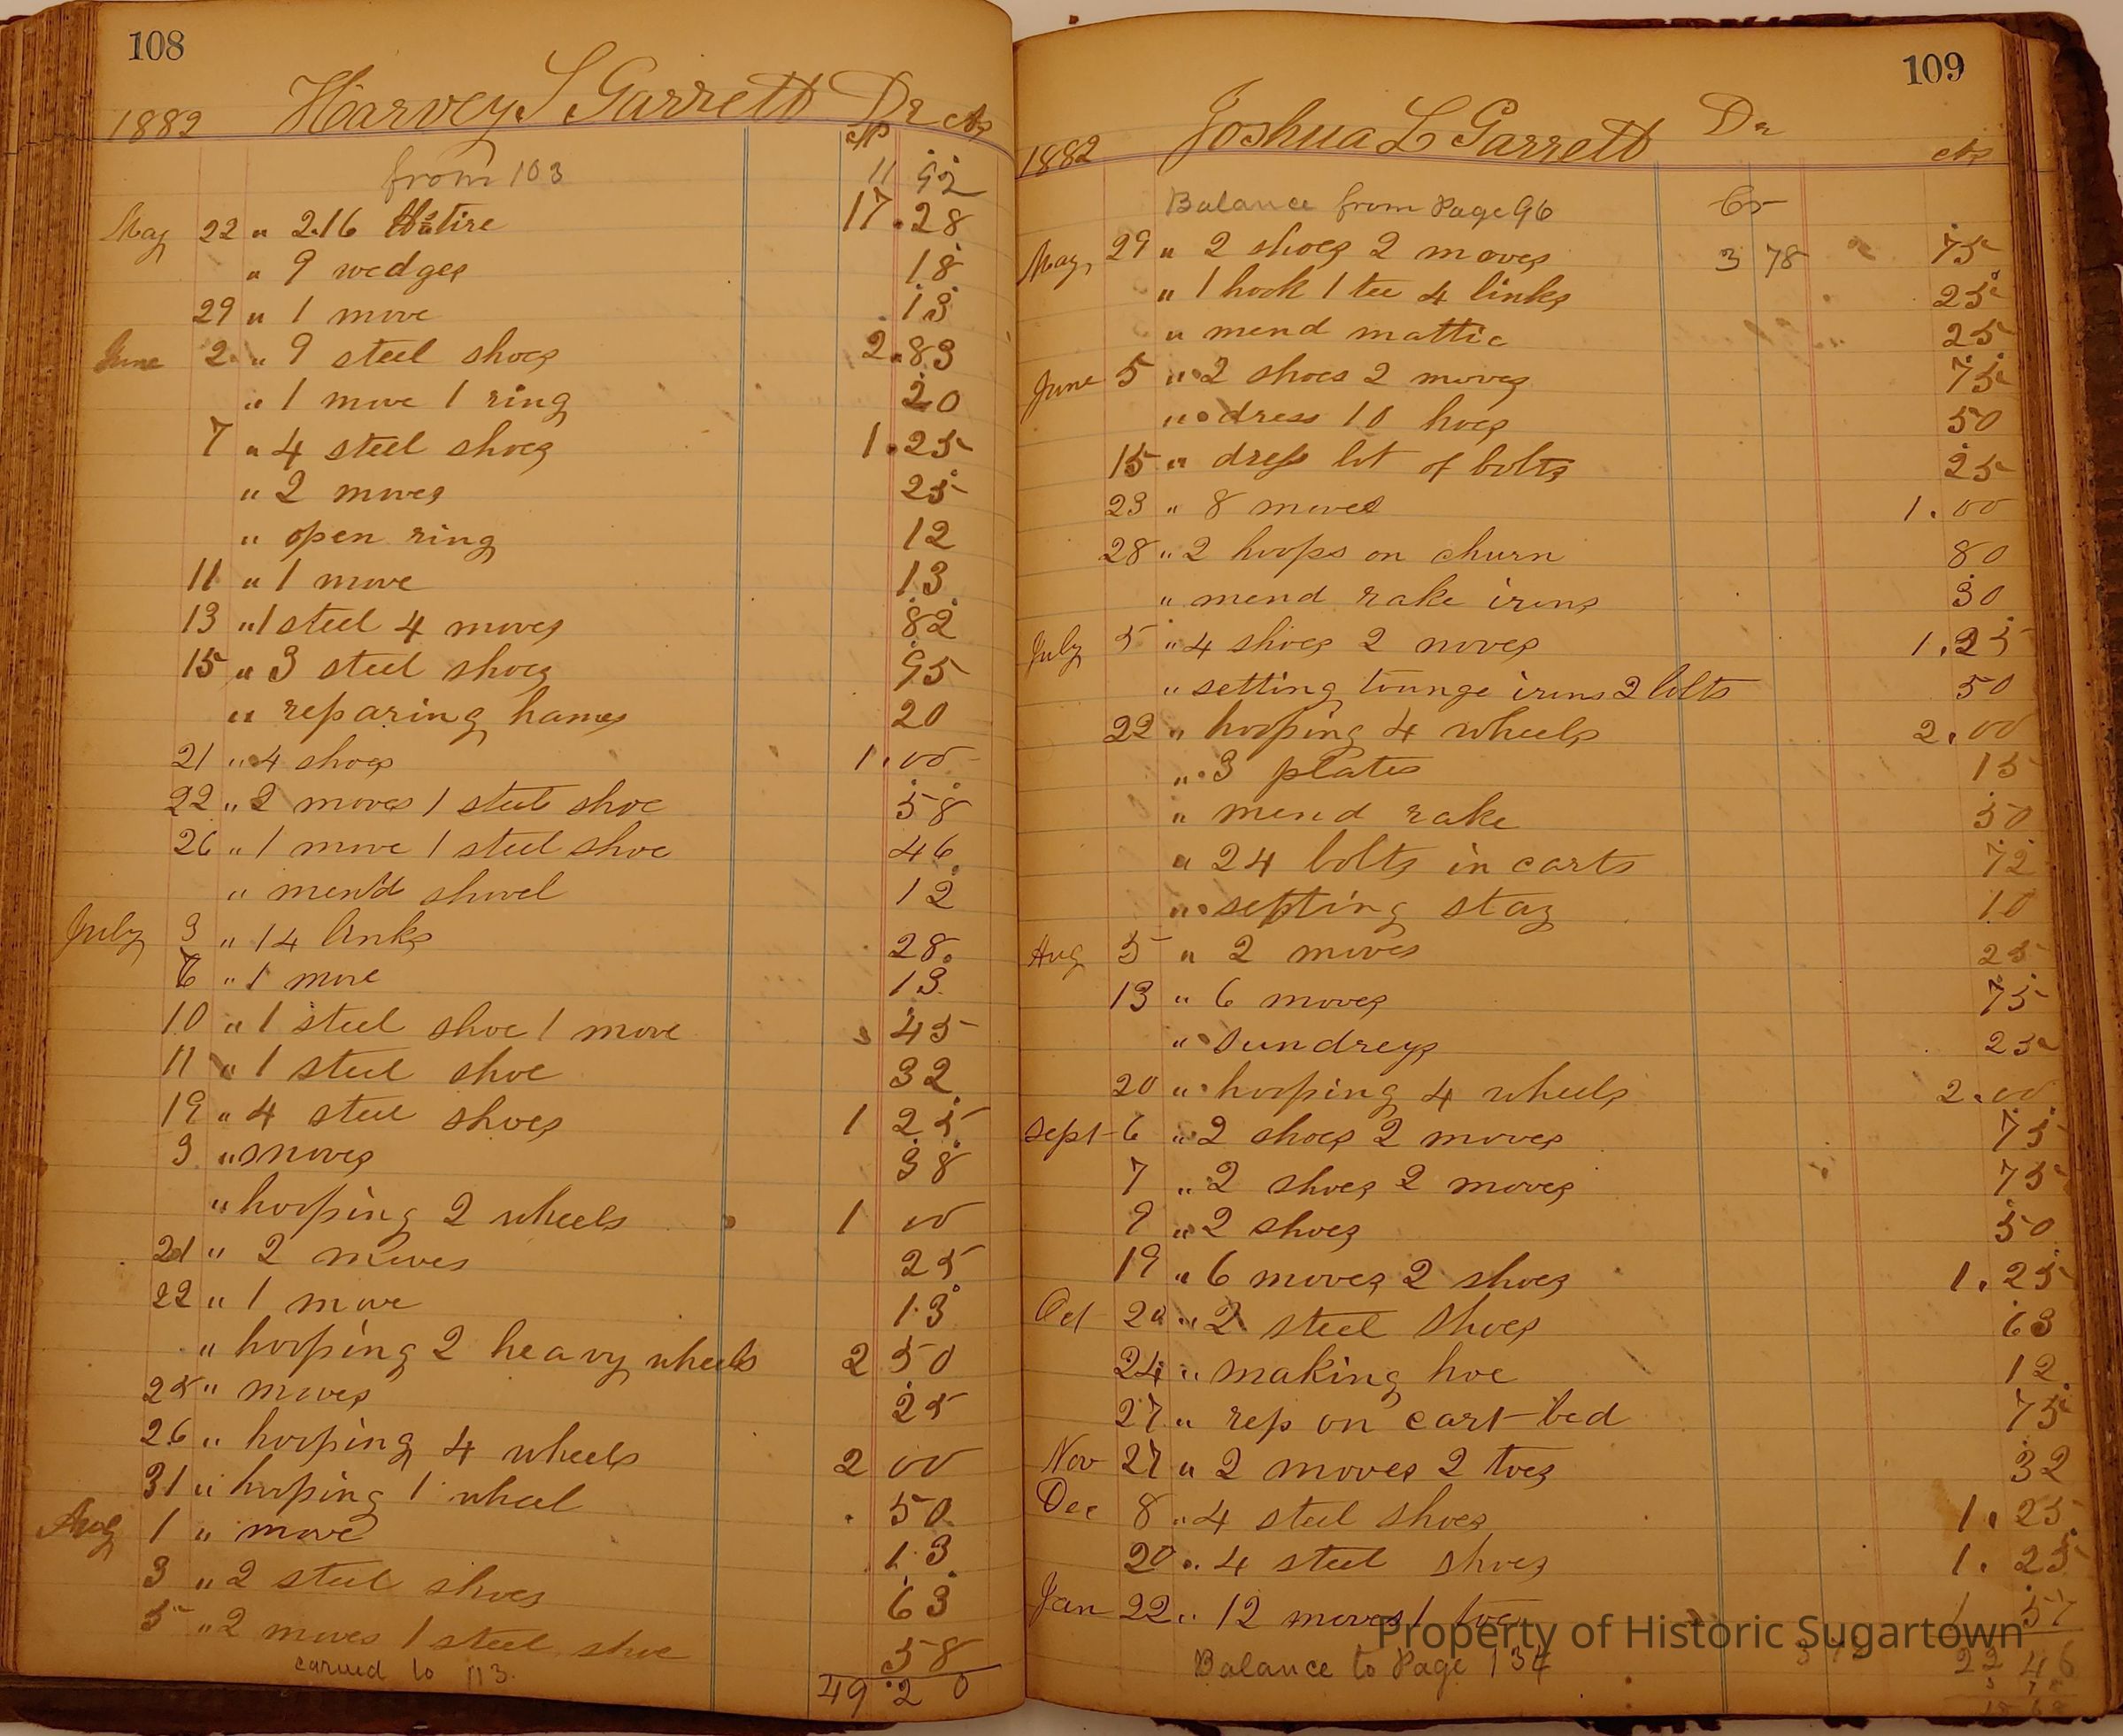 108
1882 Harvey S Garrett Dr cts
from 103 11 92
May 22 " 216 tire 17.28
" 9 wedges 18
29 " 1 move 13
June 2 " 9 steel shoes 2.83
" 1 move 1 ring 20
7 " 4 steel shoes 1.25
" 2 moves 25
" open ring 12
11 " 1 move 13
13 " 1 steel 4 moves 82
15 " 3 steel shoes 95
" reparing hames 20
21 " 4 shoes 1.00
22 " 2 moves 1 steel shoe 58
26 " 1 move 1 steel shoe 46
" mend shovel 12
July 3 " 14 links 28
6 " 1 move 13
10 " 1 steel shoe 1 move 45
11 " 1 steel shoe 32
19 " 4 steel shoes 1 25
3 " moves 38
" hooping 2 wheels 1 00
21 " 2 moves 25
22 " 1 move 13
" hooping 2 heavy wheels 2 50
25 " moves 25
26 " hooping 4 wheels 2 00
31 " hooping 1 wheel 50
Aug 1 " move 13
3 " 2 steel shoes 63
5 " 2 moves 1 steel shoe 58
carried to 113. 49.20
109
1882 Joshua L Garrett Dr cts
Balance from Page 96 Cr
May 29 " 2 shoes 2 moves 3 78 75
" 1 hook 1 tee 4 links 25
" mend mattic 25
June 5 " 2 shoes 2 moves 75
" dress 10 hoes 50
15 " dress lot of bolts 25
23 " 8 moves 1.00
28 " 2 hoops on churn 80
" mend rake irons 30
July 5 " 4 shoes 2 moves 1.25
" setting tounge irons 2 bolts 50
22 " hooping 4 wheels 2.00
" 3 plates 15
" mend rake 50
" 24 bolts in carts 72
" setting stay 10
Aug 5 " 2 moves 25
13 " 6 moves 75
" sundreys 25
20 " hooping 4 wheels 2.00
Sept 6 " 2 shoes 2 moves 75
7 " 2 shoes 2 moves 75
9 " 2 shoes 50
19 " 6 moves 2 shoes 1.25
Oct 20 " 2 steel shoes 63
24 " making hoe 12
27 " rep on cart bed 75
Nov 27 " 2 moves 2 toes 32
Dec 8 " 4 steel shoes 1.25
20 " 4 steel shoes 1.25
Jan 22 " 12 moves 1 toe 1 57
Property of Historic Sugartown
Balance to Page 134 22 46